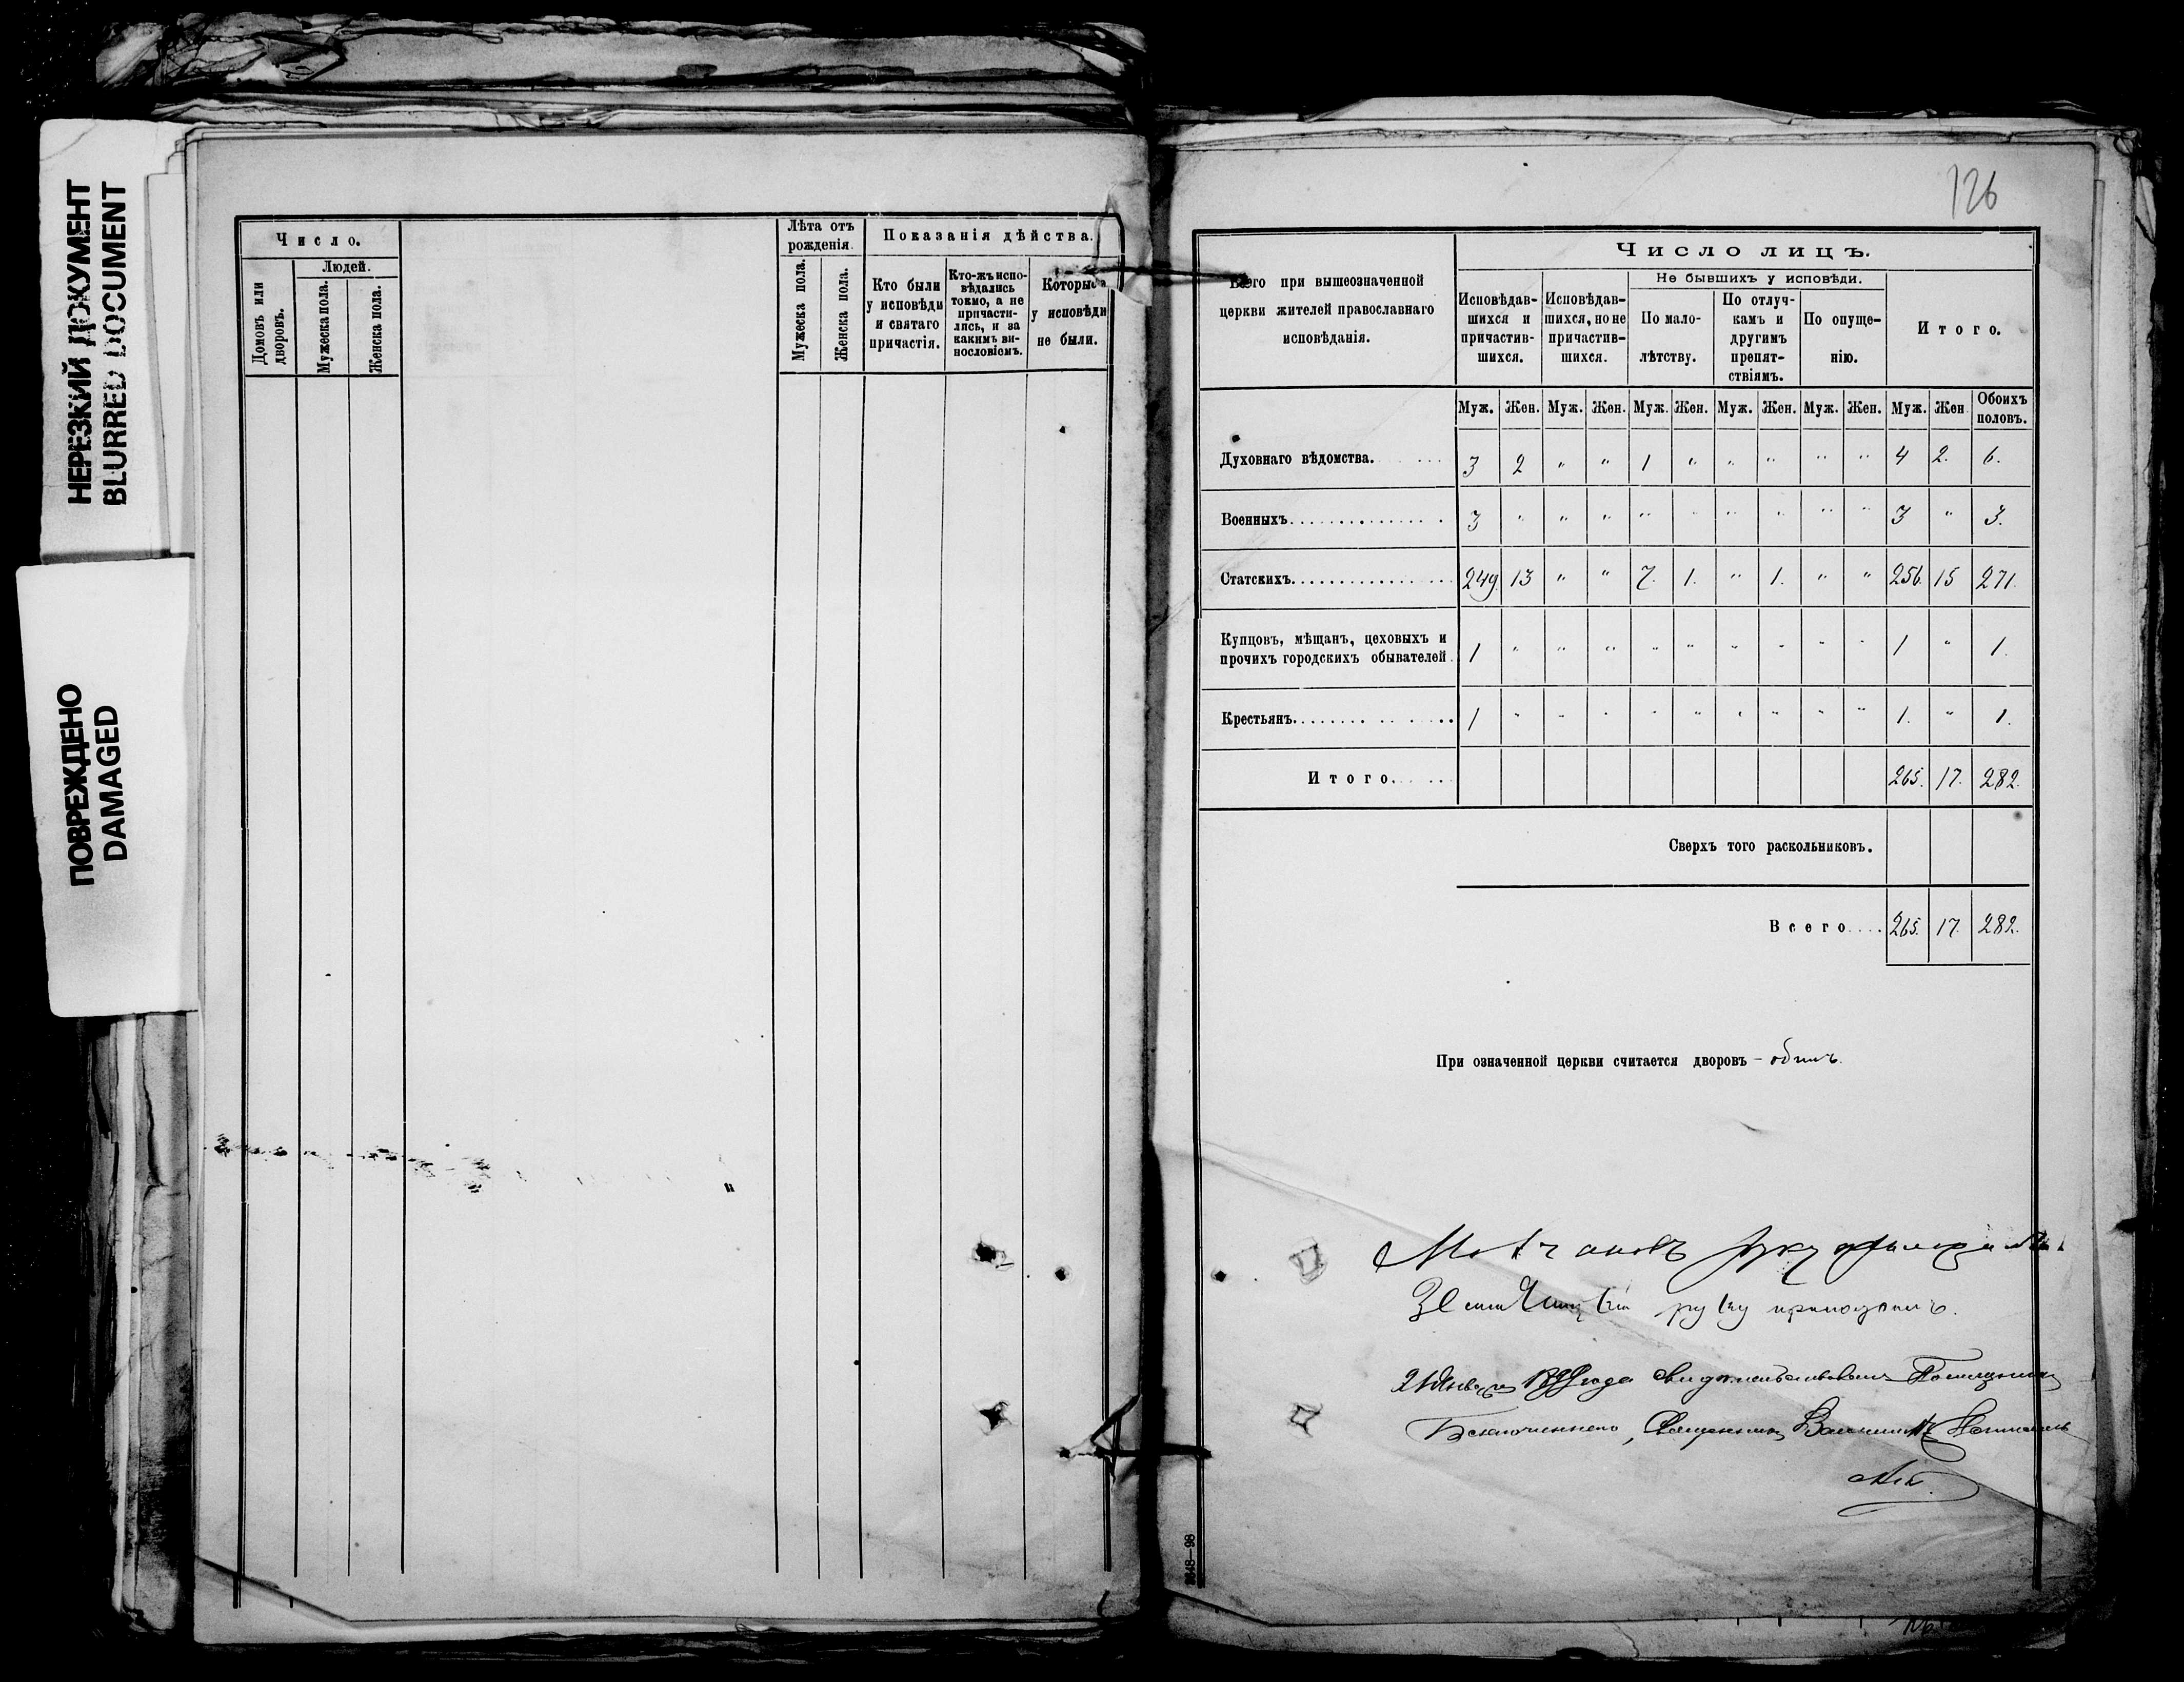 НЕРЕЗКИЙ ДОКУМЕНТ
BLURRED DOCUMENT
ПОВРЕЖДЕНО
DAMAGED
Число.
Людей.
Домовъ или дворовъ.
Мужеска пола.
Женска пола.
Лѣта отъ
рожденія.
Мужеска пола.
Женска пола.
Показанія дѣйства.
Кто были
у исповѣди
и святаго
причастія.
Кто-жъ испо-
вѣдались
токмо, а не
причасти-
лись, и за
какимъ ви-
нословіемъ.
Которые
у исповѣди
не были.
126
Всего при вышеозначенной
церкви жителей православнаго
исповѣданія.
Число лицъ.
Исповѣдав-
шихся и
причастив-
шихся.
Исповѣдав-
шихся, но не
причастив-
шихся.
Не бывшихъ у исповѣди.
По мало-
лѣтству.
По отлуч-
камъ и
другимъ
препят-
ствіямъ.
По опуще-
нію.
Итого.
Муж. Жен. Муж. Жен. Муж. Жен. Муж. Жен. Муж. Жен. Муж. Жен. Обоихъ
половъ.
Духовнаго вѣдомства. 3 2 " " 1 " " " " " 4 2. 6.
Военныхъ. 3 " " " " " " " " " 3 " 3.
Статскихъ. 249. 13 " " 7. 1. " 1. " " 256. 15 271.
Купцовъ, мѣщанъ, цеховыхъ и
прочихъ городскихъ обывателей. 1 " " " " " " " " " 1 " 1.
Крестьянъ. 1 " " " " " " " " " 1. " 1.
Итого. 265. 17. 282.
Сверхъ того раскольниковъ.
Всего. 265. 17. 282.
При означенной церкви считается дворовъ – одинъ.
руку
руку приложилъ.
года
Священникъ
8648—98